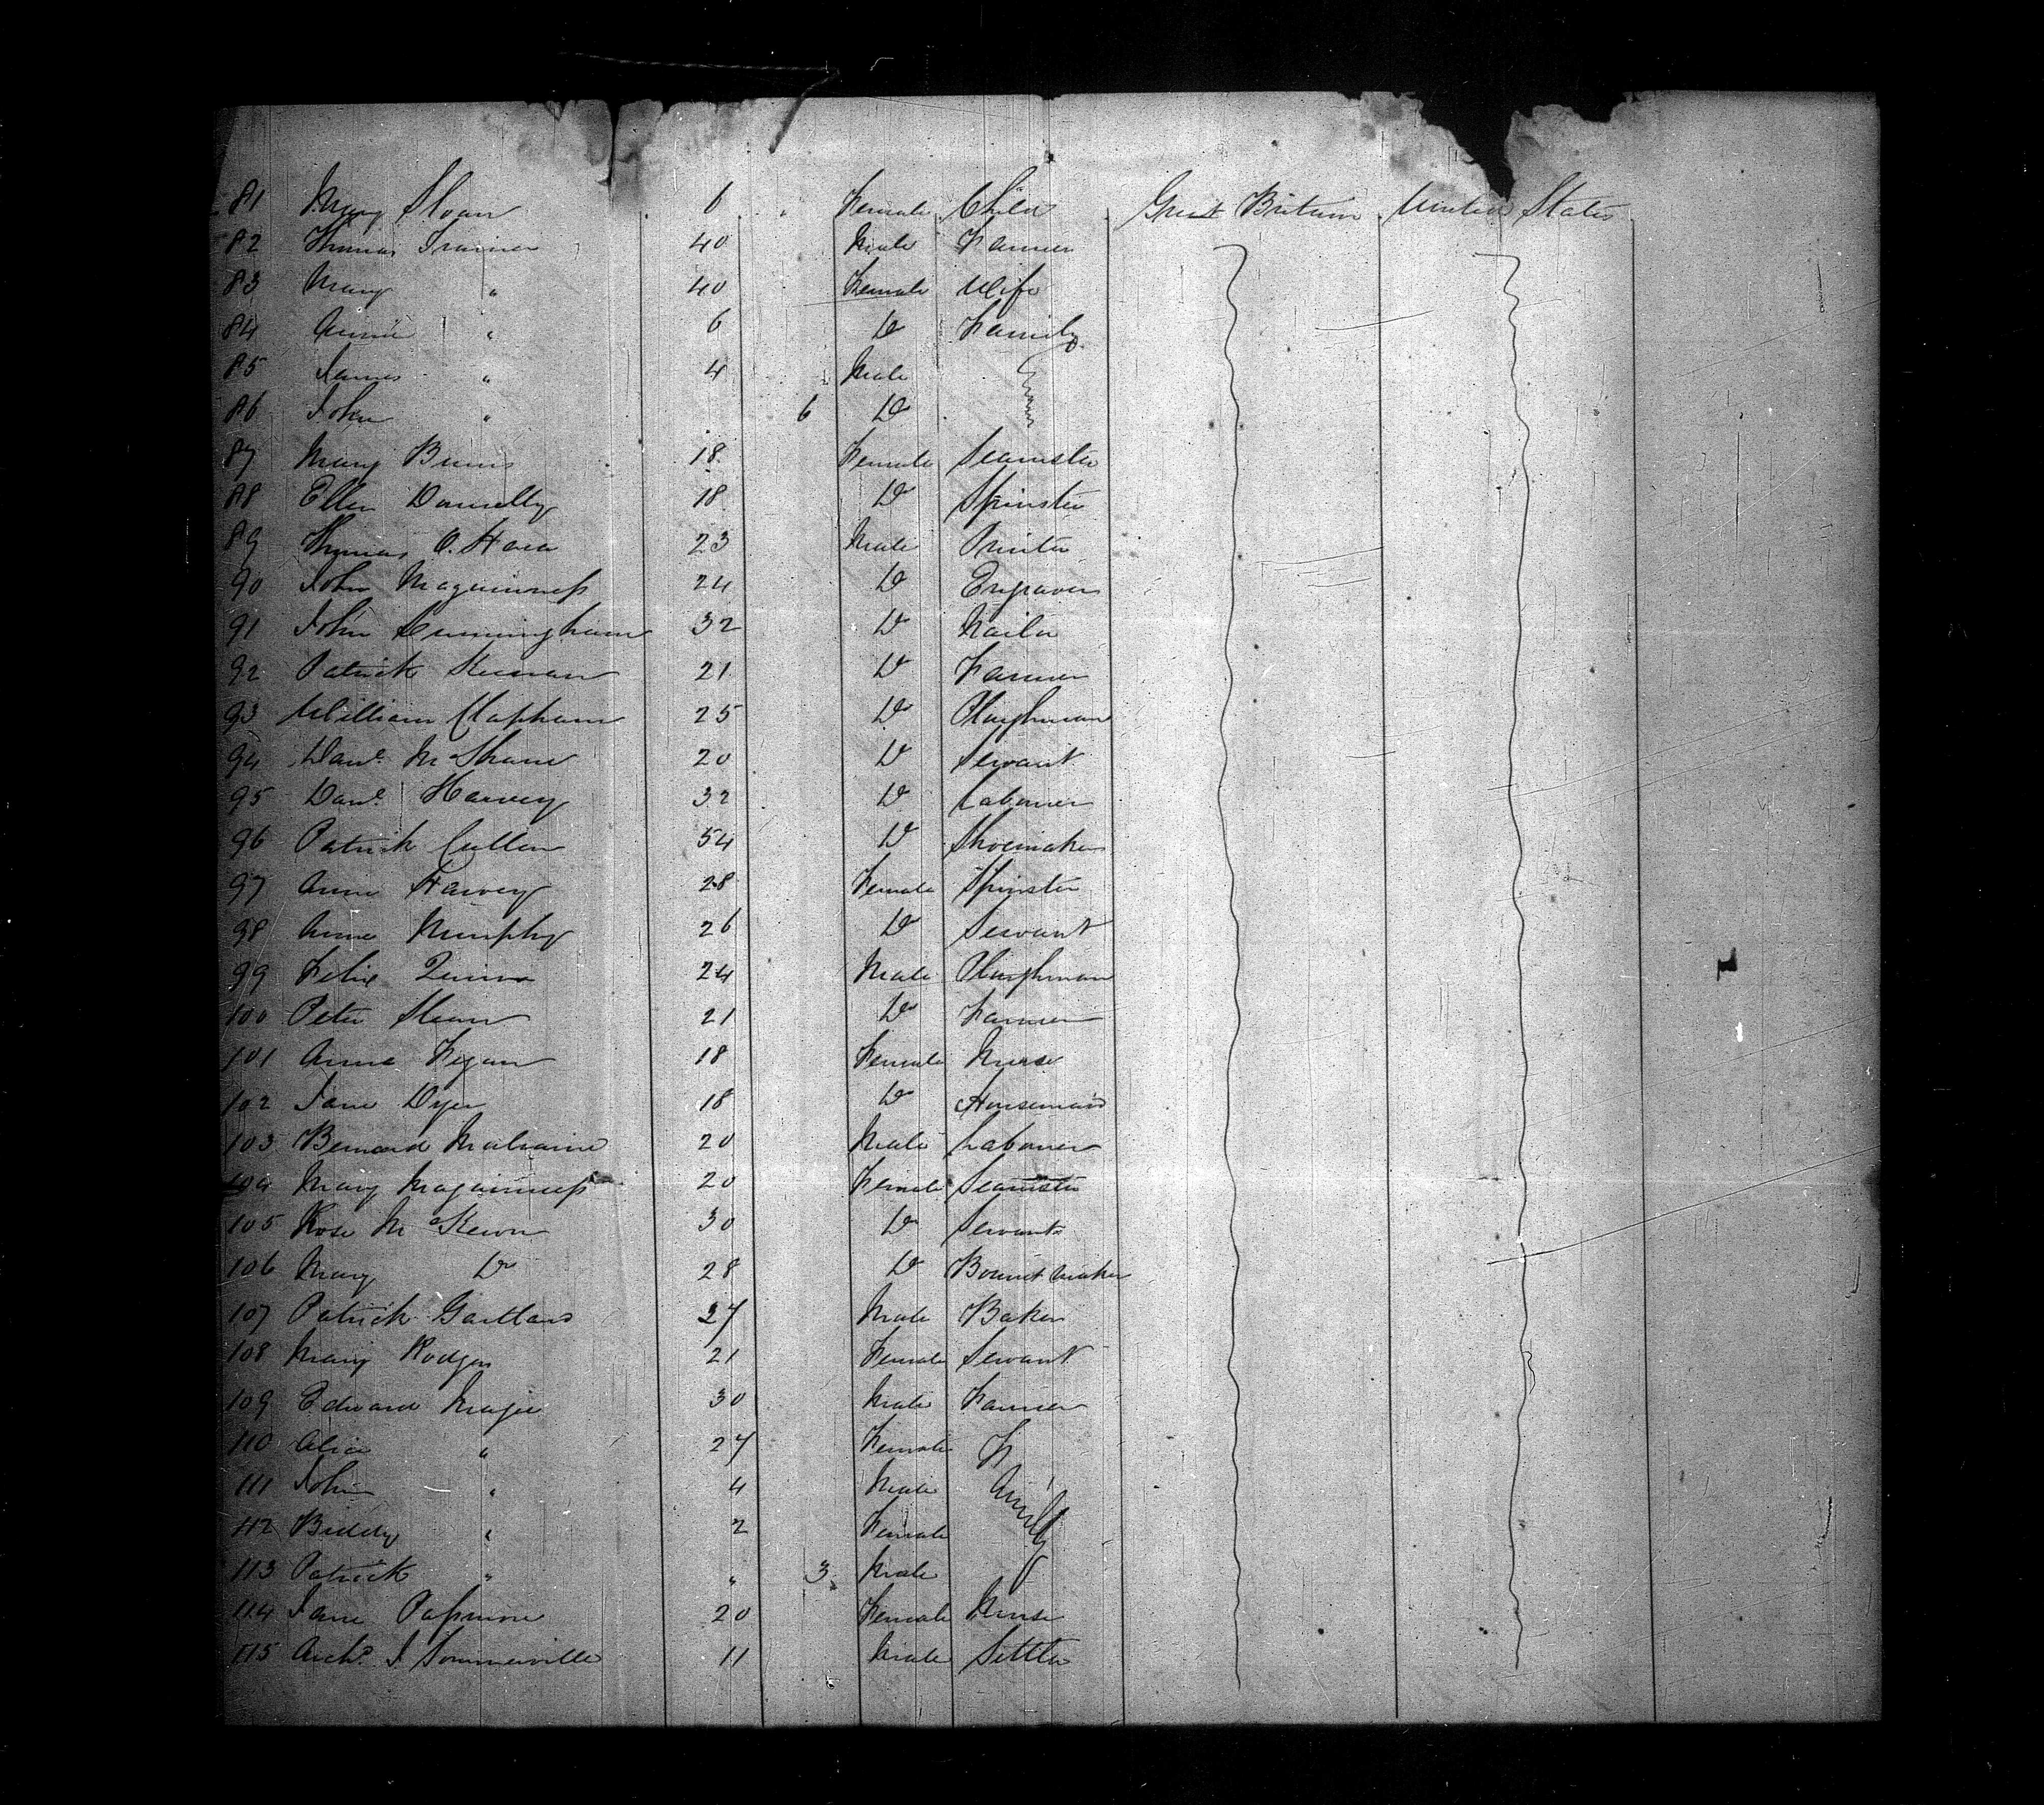 81 Mary Sloan 6 Female Child Great Britain United States
82 Thomas Trainer 40 Male Farmer
83 Mary " 40 Female Wife
84 Annie " 6 Do Family
85 James " 4 Male
86 John " 6 Do
87 Mary Burns 18 Female Seamster
88 Ellen Donnelly 18 Do Spinster
89 Thomas O. Hara 23 Male Printer
90 John Maguinness 24 Do Engraver
91 John Cunningham 32 Do Nailer
92 Patrick Keenan 21 Do Farmer
93 William Clapham 25 Do Ploughman
94 Danl. McShane 20 Do Servant
95 Danl. Harvey 32 Do Labourer
96 Patrick Cullen 54 Do Shoemaker
97 Anne Harvey 28 Female Spinster
98 Anne Murphy 26 Do Servant
99 Felix Quinn 24 Male Ploughman
100 Peter 21 Do Farmer
101 Anne Fegan 18 Female Nurse
102 Jane Dyer 18 Do Housemaid
103 Bernard 20 Male Labourer
104 Mary Maguinness 20 Female Seamster
105 Rose McKeown 30 Do Servant
106 Mary Do 28 Do Bonnet maker
107 Patrick Gartland 27 Male Baker
108 Mary Rodgers 21 Female Servant
109 Edward Magee 30 Male Farmer
110 Alice " 27 Female Family
111 John " 4 Male
112 Biddy " 2 Female
113 Patrick " " 3 Male
114 Jane Passmore 20 Female Nurse
115 Archd. J Sommerville 11 Male Settler